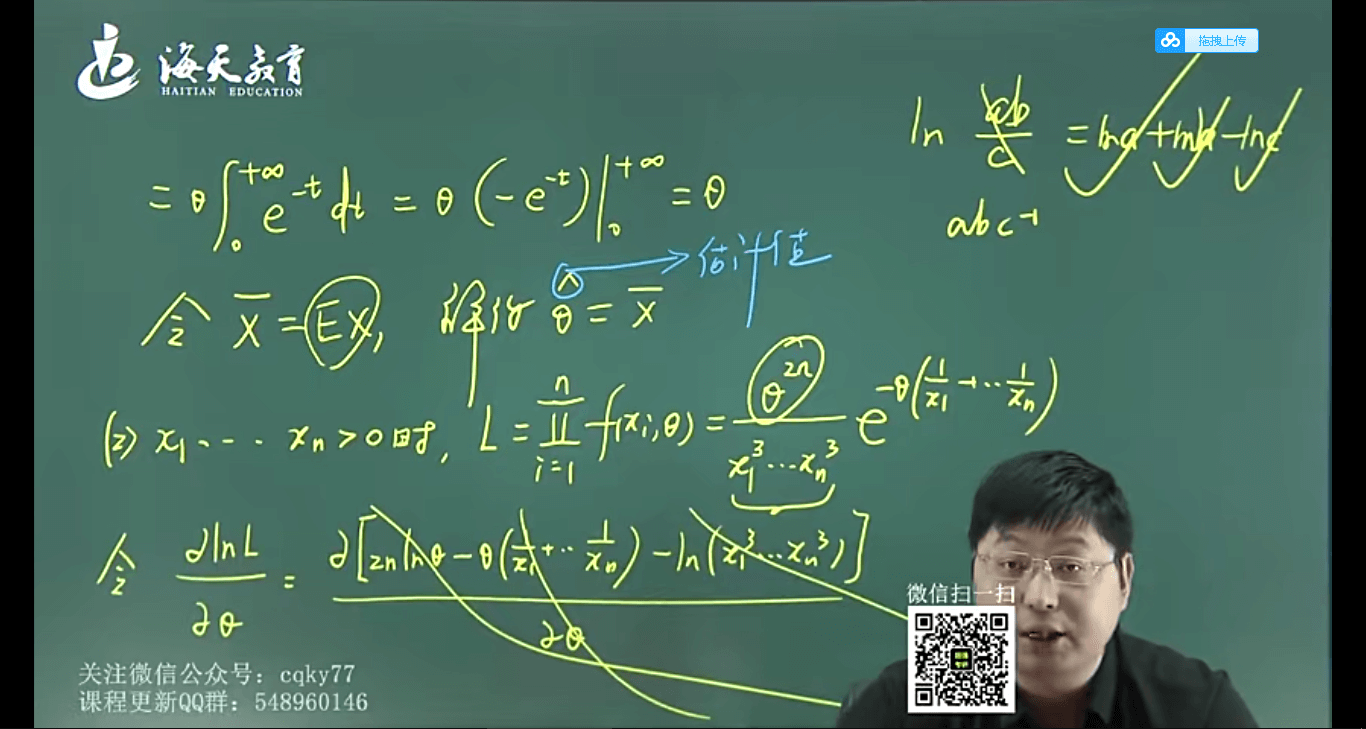 海天教育
HAITIAN EDUCATION
拖拽上传
ln ab/c = lna + lnb - lnc
abc⁻¹
= θ∫₀^{+∞} e^{-t} dt = θ(-e^{-t})|₀^{+∞} = θ
估计值
令 X̄ = EX, 解得 θ̂ = X̄
(2) x₁ ... xₙ > 0 时, L = ∏_{i=1}^{n} f(xᵢ, θ) = θ^{2n} / (x₁³...xₙ³) e^{-θ(1/x₁ + ... 1/xₙ)}
令 ∂lnL/∂θ = ∂[2n lnθ - θ(1/x₁ + ... 1/xₙ) - ln(x₁³...xₙ³)] / ∂θ
微信扫一扫
关注微信公众号：cqky77
课程更新QQ群：548960146